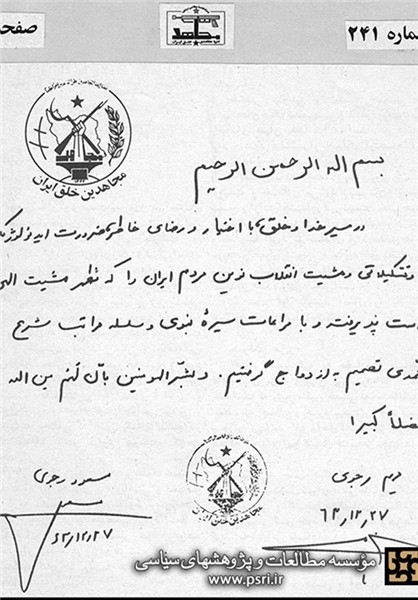 شماره ۲۴۱
مجاهد
صفحه
مجاهدین خلق ایران
بسم الله الرحمن الرحیم
در مسیر خدا و خلق، با اختیار و رضای خاطر، ضرورت ایدئولوژیک
و تشکیلاتی و مشیت انقلاب نوین مردم ایران را که مظهر مشیت الهی
است پذیرفته و با مراعات سیرهٔ نبوی و سلسله مراتب شرع
محمدی تصمیم به ازدواج گرفتیم. و بشّر المومنین بأنّ لهم من الله
فضلاً کبیرا
مریم رجوی
۶۳,۱۲,۲۷
مسعود رجوی
۶۳,۱۲,۲۷
مجاهدین خلق ایران
مؤسسه مطالعات و پژوهشهای سیاسی
www.psri.ir